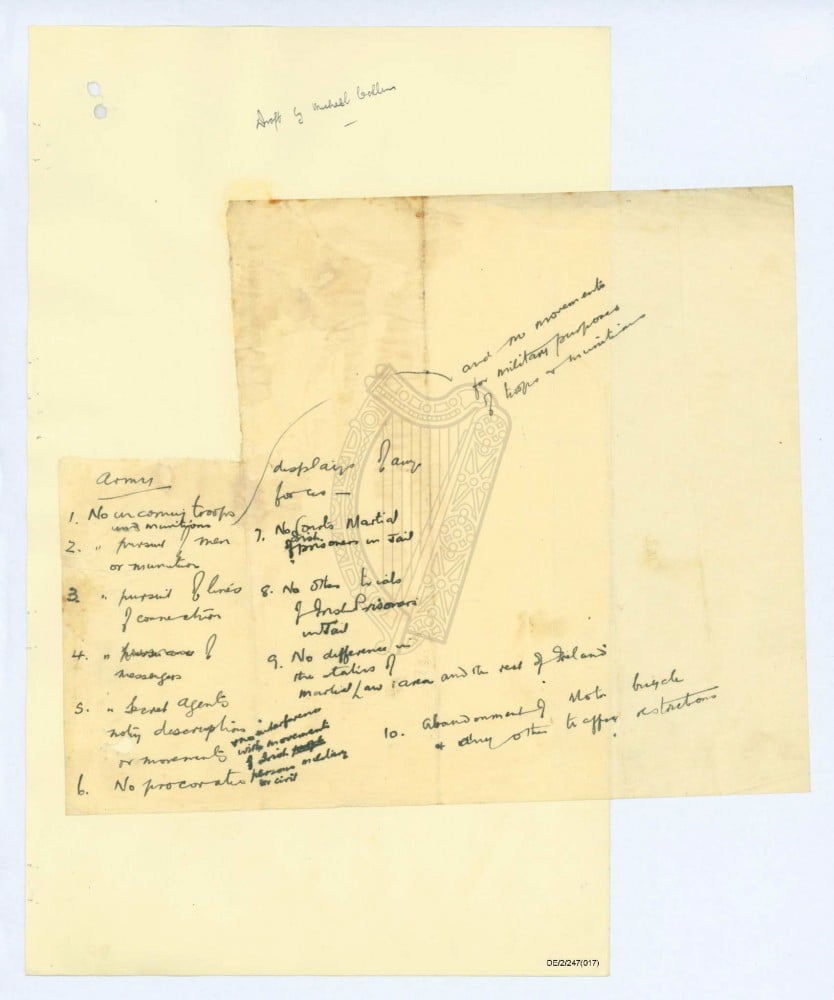 Draft by Michael Collins
and no movements
for military purposes
of troops or munitions
Army
1. No incoming troops
and munitions
2. " pursuit of men
or munition
3. " pursuit of lines
of connection
4. " of
messengers
5. " Secret Agents
noting descriptions
or movements
no interference
with movement
of Irish people
persons military
or civil
6. No provocative
displays of any
forces —
7. No Courts Martial
of Irish
prisoners in Jail
8. No other trials
of Irish Prisoners
in Jail
9. No difference in
the status of
Martial Law area and the rest of Ireland
10. Abandonment of Motor bicycle
+ any other traffic restrictions
DE/2/247(017)